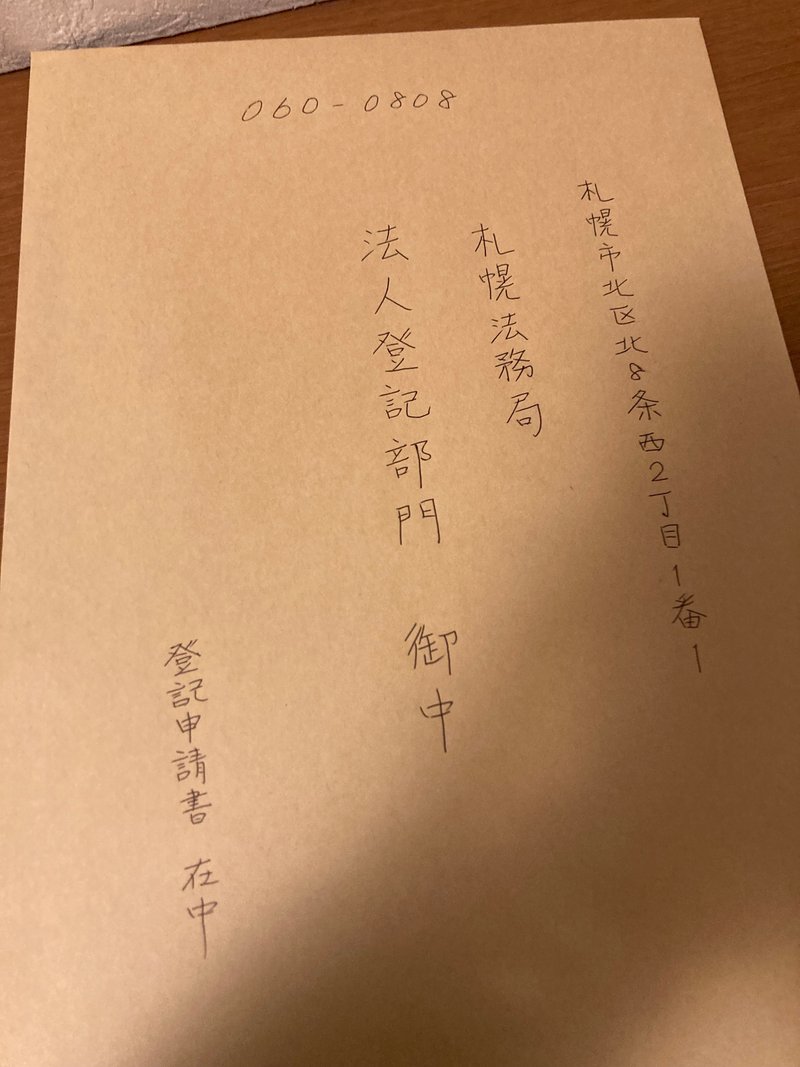 060-0808
札幌市北区北8条西2丁目1番1
札幌法務局
法人登記部門 御中
登記申請書 在中